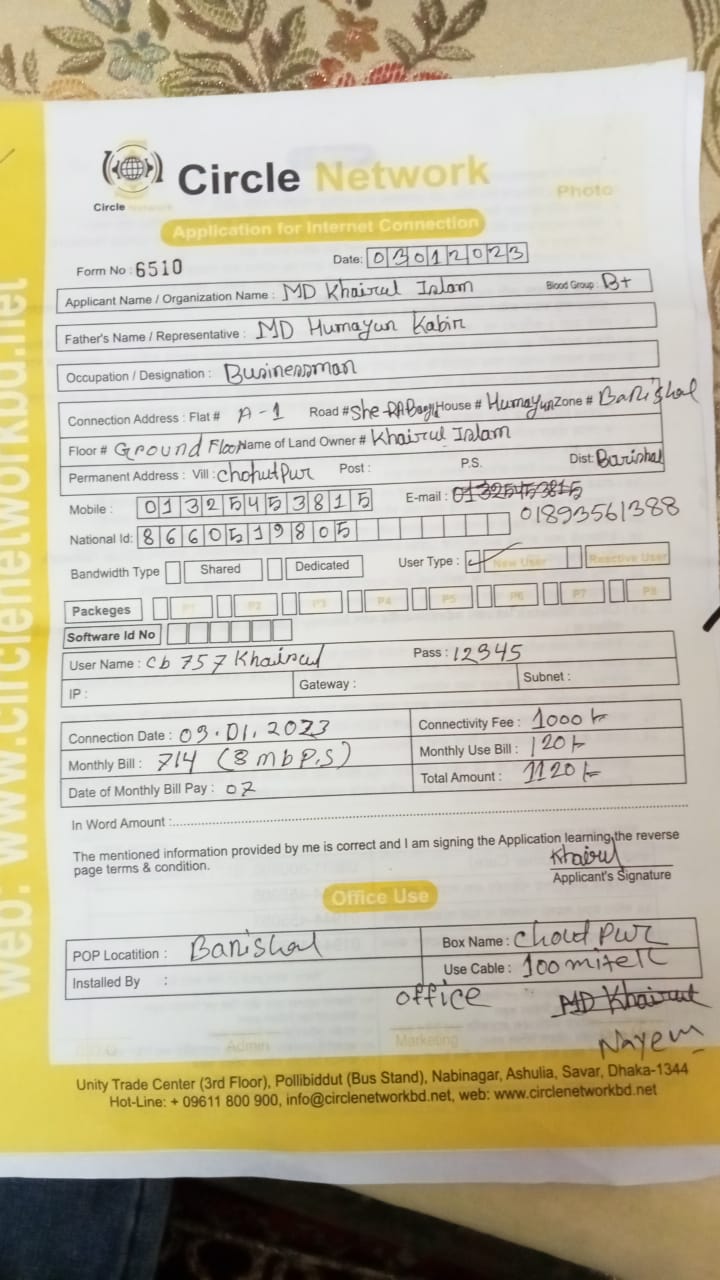 web: www.circlenetworkbd.net
Circle Network
Circle Network
Photo
Application for Internet Connection
Form No : 6510
Date: 03012023
Applicant Name / Organization Name : MD Khairul Islam Blood Group : B+
Father's Name / Representative : MD Humayun Kabir
Occupation / Designation : Businessman
Connection Address : Flat # A-1 Road # House # Humayun Zone # Barishal
Floor # Ground Floor Name of Land Owner # Khairul Islam
Permanent Address : Vill : Post : P.S. Dist: Barishal
Mobile : 01325453815 E-mail : 01325453815
01893561388
National Id: 8660519805
Bandwidth Type Shared Dedicated User Type : New User Reactive User
Packeges P1 P2 P3 P4 P5 P6 P7 P8
Software Id No
User Name : cb 757 Khairul Pass : 12345
IP : Gateway : Subnet :
Connection Date : 03.01.2023 Connectivity Fee : 1000 /-
Monthly Bill : 714 (8 mbp.s) Monthly Use Bill : 120 /-
Date of Monthly Bill Pay : 07 Total Amount : 1120 /-
In Word Amount :
The mentioned information provided by me is correct and I am signing the Application learning,the reverse
page terms & condition.
Khairul
Applicant's Signature
Office Use
POP Locatition : Barishal Box Name :
Installed By : Use Cable : 100 miter
office MD Khairul
Nayem
Admin Marketing
Unity Trade Center (3rd Floor), Pollibiddut (Bus Stand), Nabinagar, Ashulia, Savar, Dhaka-1344
Hot-Line: + 09611 800 900, info@circlenetworkbd.net, web: www.circlenetworkbd.net